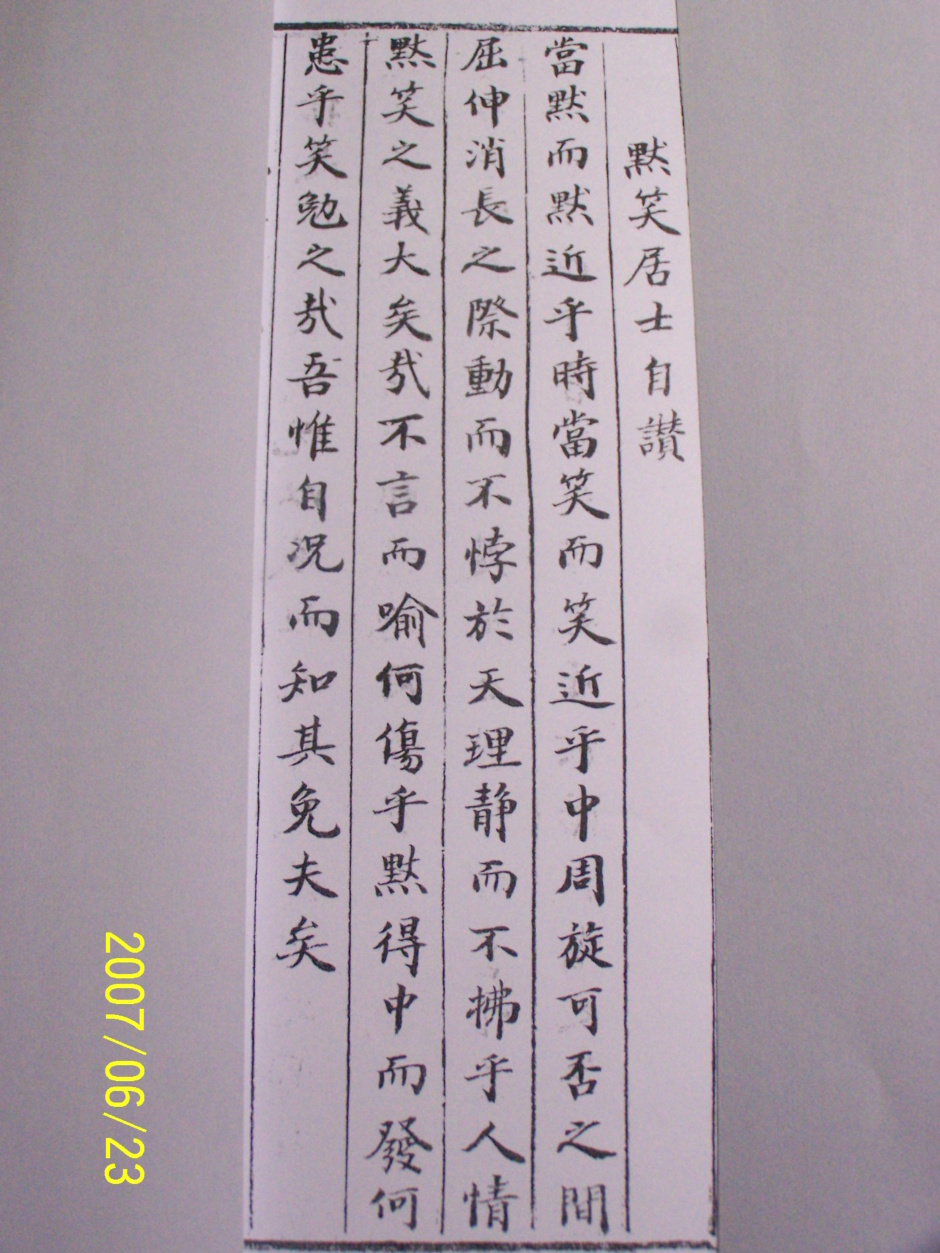 默笑居士自讃
當默而默近乎時當笑而笑近乎中周旋可否之間
屈伸消長之際動而不悖於天理静而不拂乎人情
默笑之義大矣哉不言而喻何傷乎默得中而發何
患乎笑勉之哉吾惟自况而知其免夫矣
2007/06/23